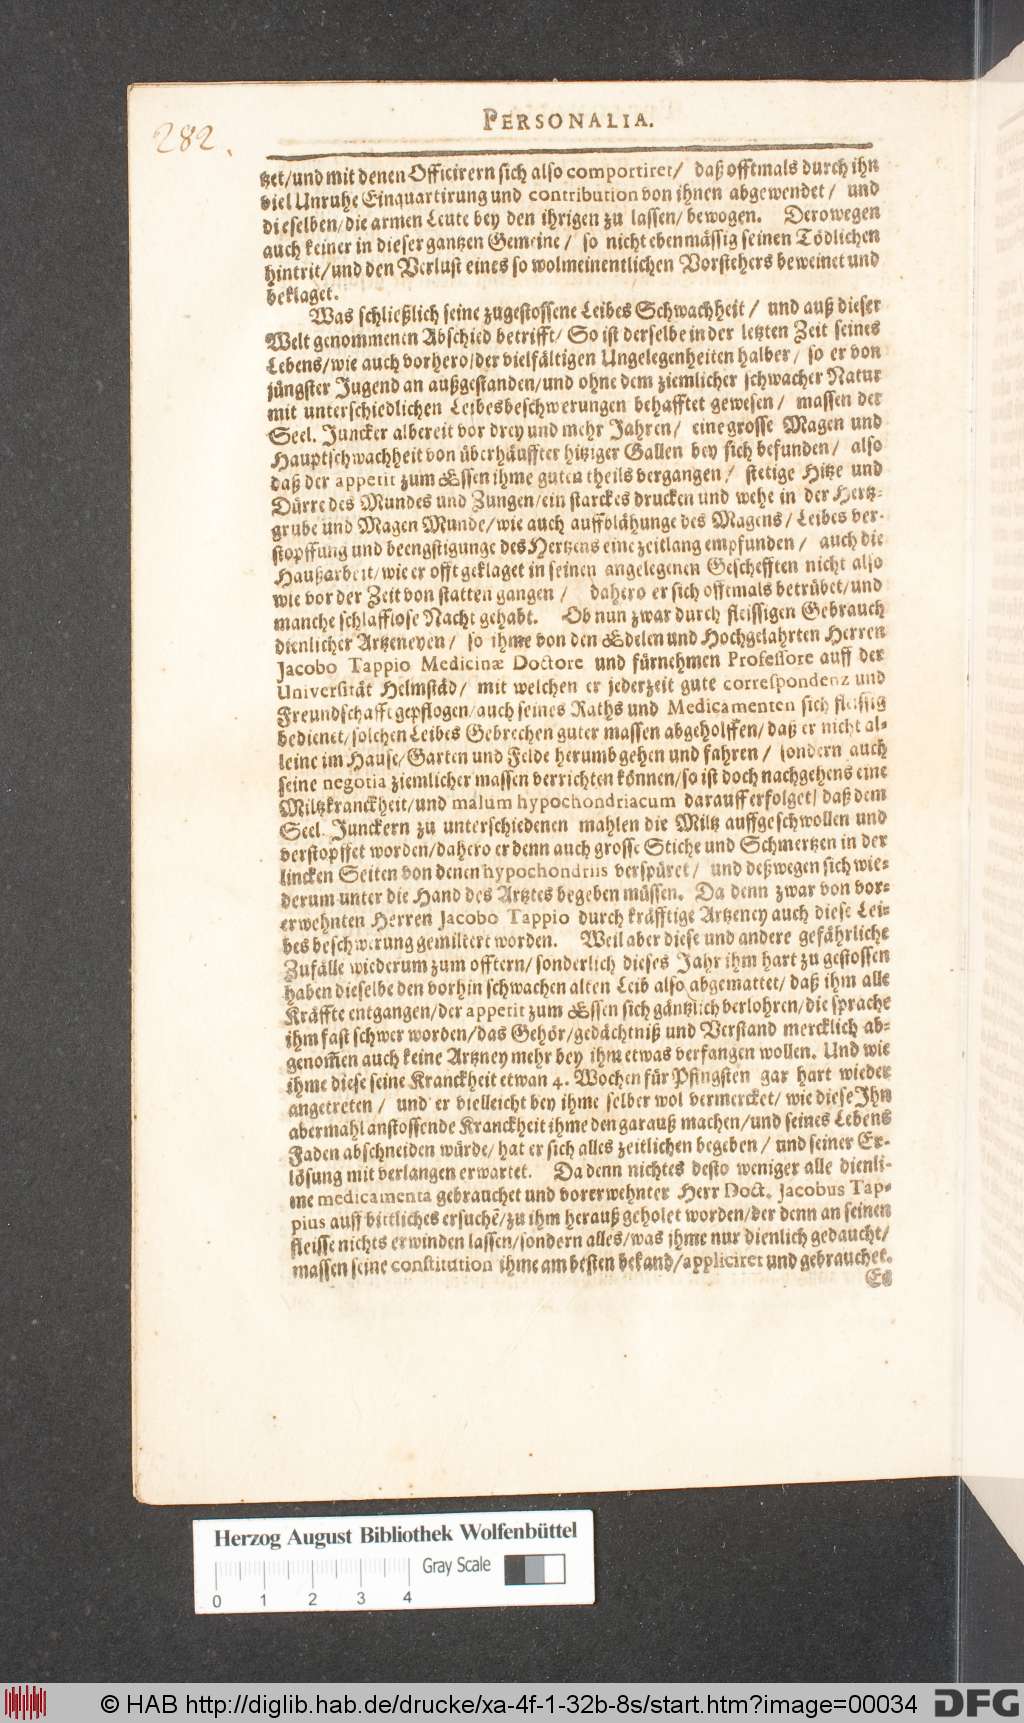 282.
PERSONALIA.
tzet/und mit denen Officirern sich also comportiret/ daß offtmals durch ihn
viel Unruhe Einquartirung und contribution von ihnen abgewendet/ und
dieselben/die armen Leute bey den ihrigen zu lassen/bewogen. Derowegen
auch keiner in dieser gantzen Gemeine/ so nicht ebenmässig seinen Tödlichen
hintrit/und den Verlust eines so wolmeinentlichen Vorstehers beweinet und
beklaget.
Was schließlich seine zugestossene Leibes Schwachheit/ und auß dieser
Welt genommenen Abschied betrifft/ So ist derselbe in der letzten Zeit seines
Lebens/wie auch vorhero/der vielfältigen Ungelegenheiten halber/ so er von
jüngster Jugend an außgestanden/und ohne dem ziemlicher schwacher Natur
mit unterschiedlichen Leibesbeschwerungen behafftet gewesen/ massen der
Seel. Juncker albereit vor drey und mehr Jahren/ eine grosse Magen und
Hauptschwachheit von überhäuffter hitziger Gallen bey sich befunden/ also
daß der appetit zum Essen ihme guten theils vergangen/ stetige Hitze und
Dürre des Mundes und Zungen/ein starckes drucken und wehe in der Hertz-
grube und Magen Munde/wie auch auffblähunge des Magens/Leibes ver-
stopffung und beengstigunge des Hertzens eine zeitlang empfunden/ auch die
Haußarbeit/wie er offt geklaget in seinen angelegenen Geschefften nicht also
wie vor der Zeit von statten gangen/ dahero er sich offtmals betrübet/und
manche schlafflose Nacht gehabt. Ob nun zwar durch fleissigen Gebrauch
dienlicher Artzeneyen/ so ihme von den Edelen und Hochgelahrten Herren
Jacobo Tappio Medicinæ Doctore und fürnehmen Professore auff der
Universität Helmstäd/ mit welchen er jederzeit gute correspondenz und
Freundschafft gepflogen/auch seines Raths und Medicamenten sich fleissig
bedienet/solchen Leibes Gebrechen guter massen abgeholffen/daß er nicht al-
leine im Hause/Garten und Felde herumb gehen und fahren/ sondern auch
seine negotia ziemlicher massen verrichten können/so ist doch nachgehens eine
Miltzkranckheit/und malum hypochondriacum darauff erfolget/daß dem
Seel. Junckern zu unterschiedenen mahlen die Miltz auffgeschwollen und
verstopffet worden/dahero er denn auch grosse Stiche und Schmertzen in der
lincken Seiten von denen hypochondriis verspüret/ und deßwegen sich wie-
derum unter die Hand des Artztes begeben müssen. Da denn zwar von vor-
erwehnten Herren Jacobo Tappio durch kräfftige Artzeney auch diese Lei-
bes beschwerung gemiltert worden. Weil aber diese und andere gefährliche
Zufälle wiederum zum offtern/sonderlich dieses Jahr ihm hart zu gestossen
haben dieselbe den vorhin schwachen alten Leib also abgemattet/daß ihm alle
Kräffte entgangen/der appetit zum Essen sich gäntzlich verlohren/die sprache
ihm fast schwer worden/das Gehör/gedächtniß und Verstand mercklich ab-
genom̃en auch keine Artzney mehr bey ihm etwas verfangen wollen. Und wie
ihme diese seine Kranckheit etwan 4. Wochen für Pfingsten gar hart wieder
angetreten/ und er vielleicht bey ihme selber wol vermercket/wie diese Ihn
abermahl anstossende Kranckheit ihme den garauß machen/und seines Lebens
Faden abschneiden würde/hat er sich alles zeitlichen begeben/ und seiner Er-
lösung mit verlangen erwartet. Da denn nichtes desto weniger alle dienli-
me medicamenta gebrauchet und vorerwehnter Herr Doct. Jacobus Tap-
pius auff bittliches ersuchẽ/zu ihm herauß geholet worden/der denn an seinen
fleisse nichts erwinden lassen/sondern alles/was ihme nur dienlich gedaucht/
massen seine constitution ihme am besten bekand/appliciret und gebrauchet.
Es
Herzog August Bibliothek Wolfenbüttel
Gray Scale
0 1 2 3 4
© HAB http://diglib.hab.de/drucke/xa-4f-1-32b-8s/start.htm?image=00034
DFG